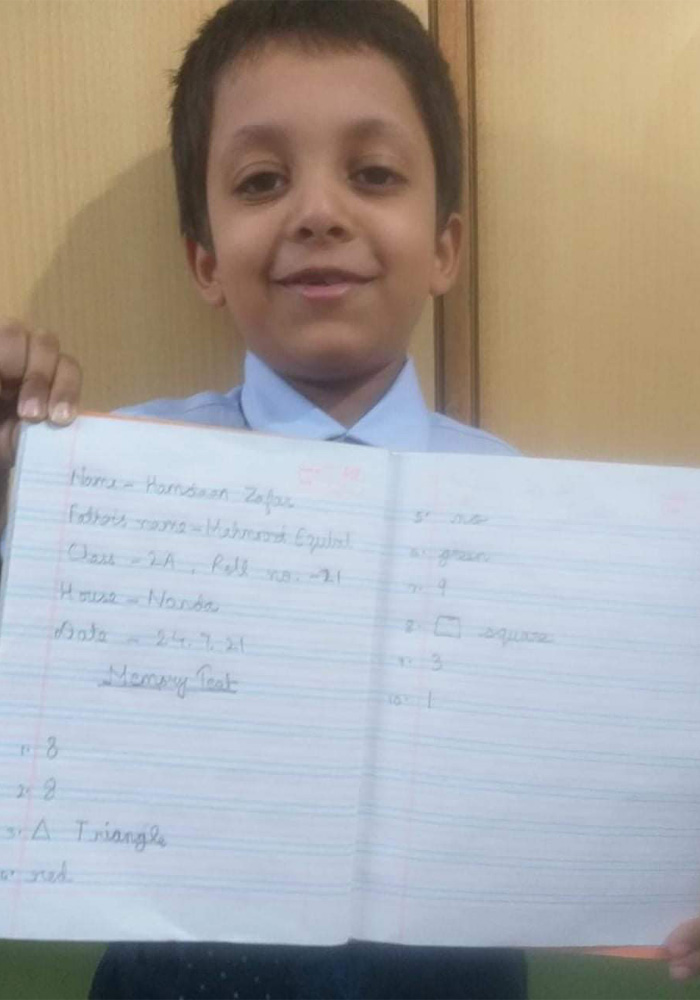 Name - Hamdaan Zafar
Father's name - Mahmood Equbal
Class - 2A, Roll no. - 21
House - Nanda
Date - 24.7.21
Memory Test
1. 8
2. 8
3. △ Triangle
4. red
5. no
6. green
7. 9
8. □ square
9. 3
10. 1